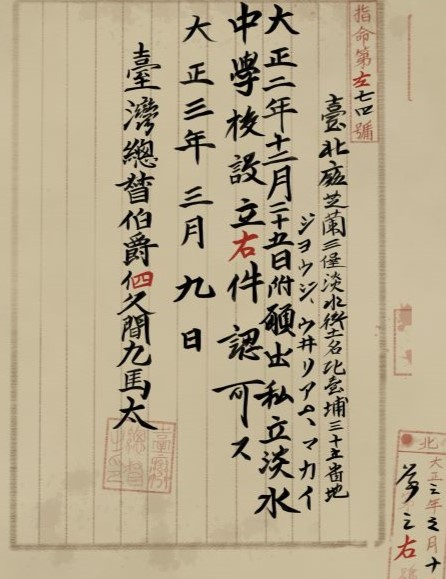 指命第左七口號
臺北廳芝蘭三堡淡水街土名比臺埔三十五番地
ジヨウジ、ウ井リアム、マカイ
大正二年十二月二十五日附願出私立淡水
中學校設立右件認可ス
大正三年三月九日
臺灣總督伯爵四久間九馬太
臺灣總督之印
北
大正三年三月十
右號